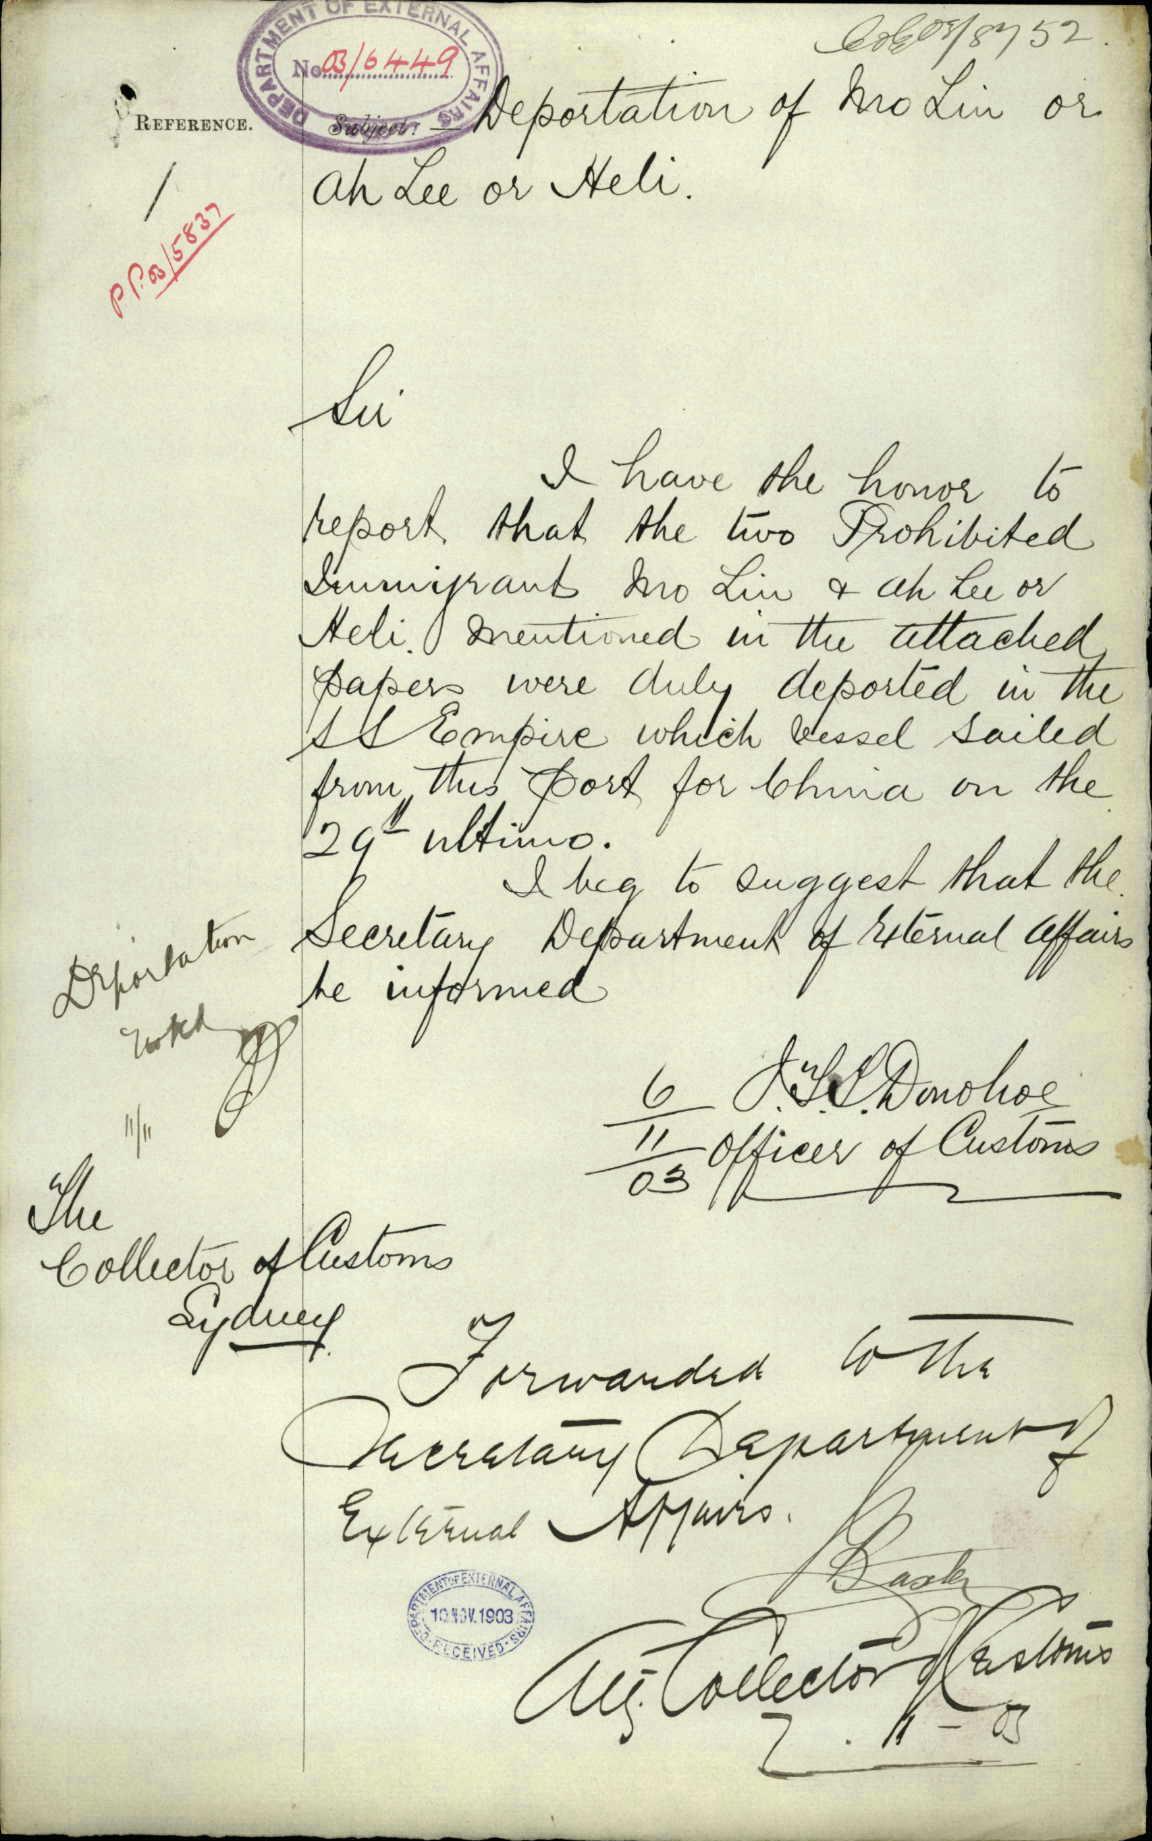 DEPARTMENT OF EXTERNAL AFFAIRS
No. 03/6449
03/8752.
REFERENCE.
Subject:— Deportation of Mo Lin or
Ah Lee or Heli.
P.P. 03/5837
Sir
I have the honor to
report that the two Prohibited
Immigrant Mo Lin & Ah Lee or
Heli. mentioned in the attached
papers were duly deported in the
SS Empire which vessel sailed
from this port for China on the
29th ultimo.
I beg to suggest that the
Secretary Department of External Affairs
be informed
Deportation
noted
11/11
6/11/03
J.T.T. Donohoe
Officer of Customs
The
Collector of Customs
Sydney
Forwarded to the
Secretary Department of
External Affairs.
DEPARTMENT OF EXTERNAL AFFAIRS
10 NOV. 1903
RECEIVED
Baxter
Actg. Collector of Customs
7.11-03